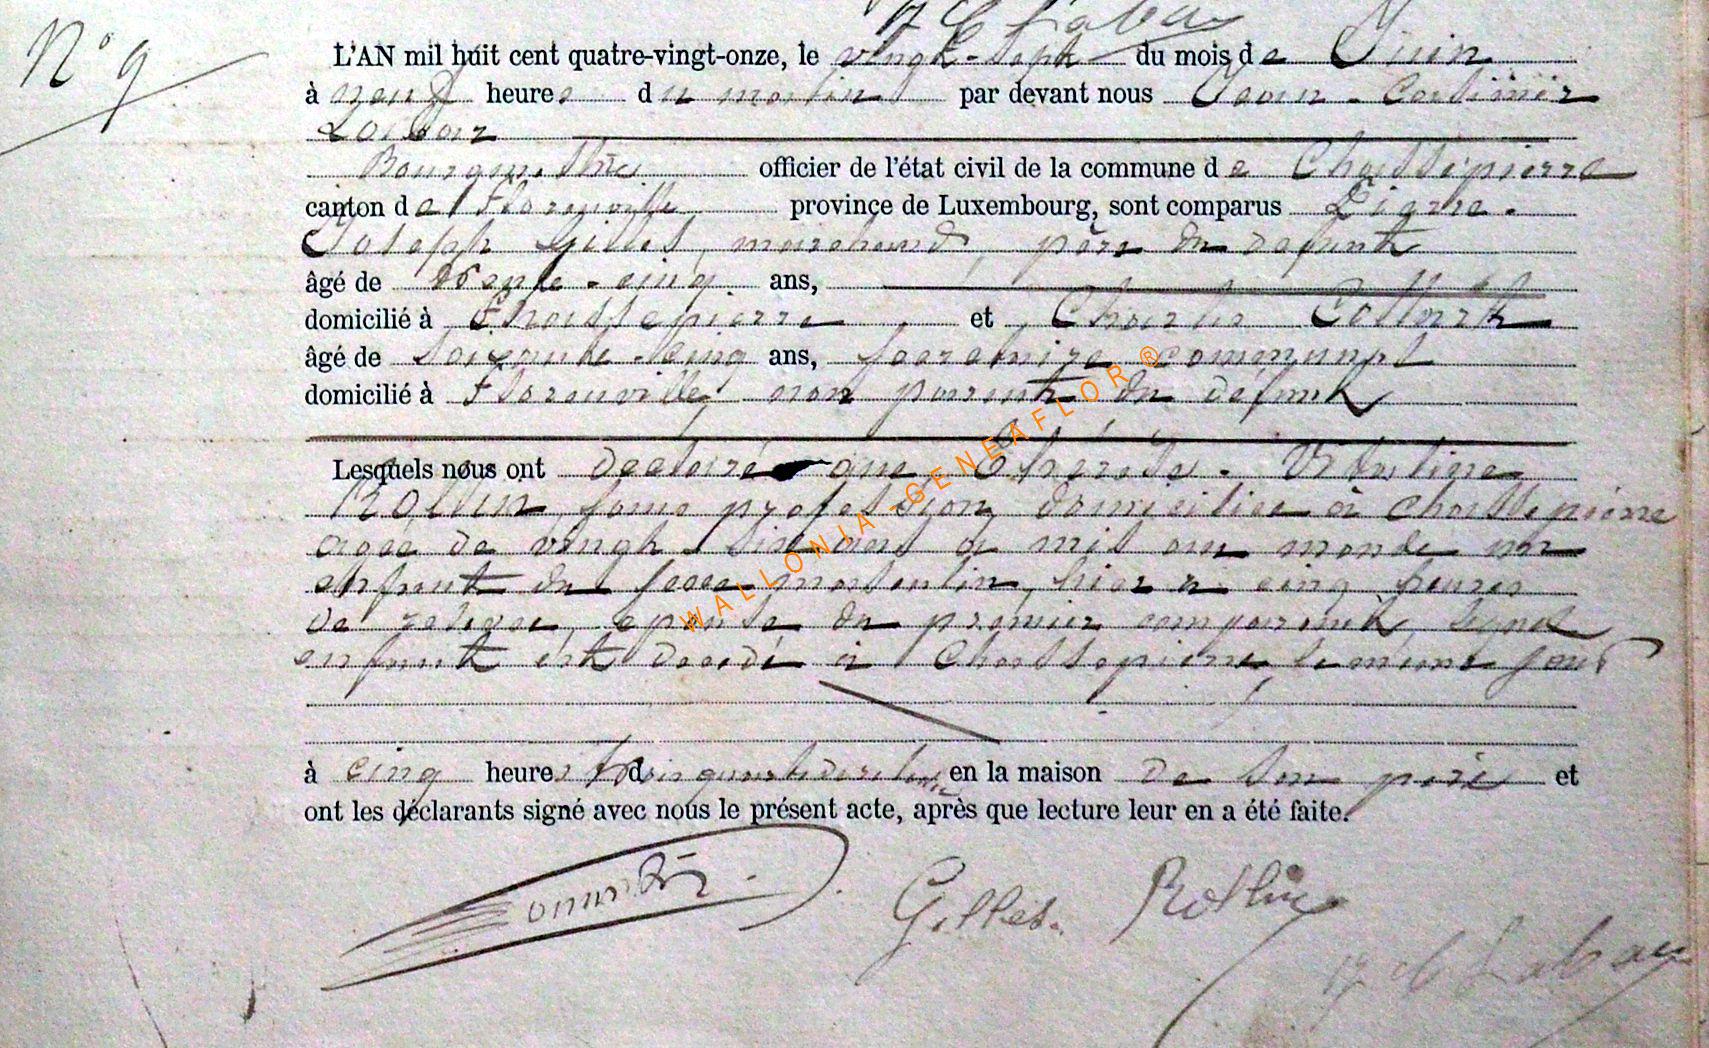 N° 9
L'AN mil huit cent quatre-vingt-onze, le vingt-sept du mois de Juin
à neuf heures du matin par devant nous Jean-Casimir
Bourgmestre officier de l'état civil de la commune de Chassepierre
canton de Florenville province de Luxembourg, sont comparus Pierre-
Joseph Gilles, marchand, père du défunt
âgé de trente-cinq ans,
domicilié à Chassepierre et Charles
âgé de soixante-cinq ans, secrétaire communal
domicilié à Florenville, non parent du défunt
Lesquels nous ont déclaré que Thérèse-
Rollin, sans profession, domiciliée à Chassepierre
agée de vingt-six ans a mis au monde un
enfant du sexe masculin, hier à cinq heures
de relevée, épouse du premier comparant, lequel
enfant est décédé à Chassepierre, le même jour
à cinq heures trois quarts de relevée en la maison de son père et
ont les déclarants signé avec nous le présent acte, après que lecture leur en a été faite.
Gilles. Rollin
WALLONIA - GENEAFLOR ®